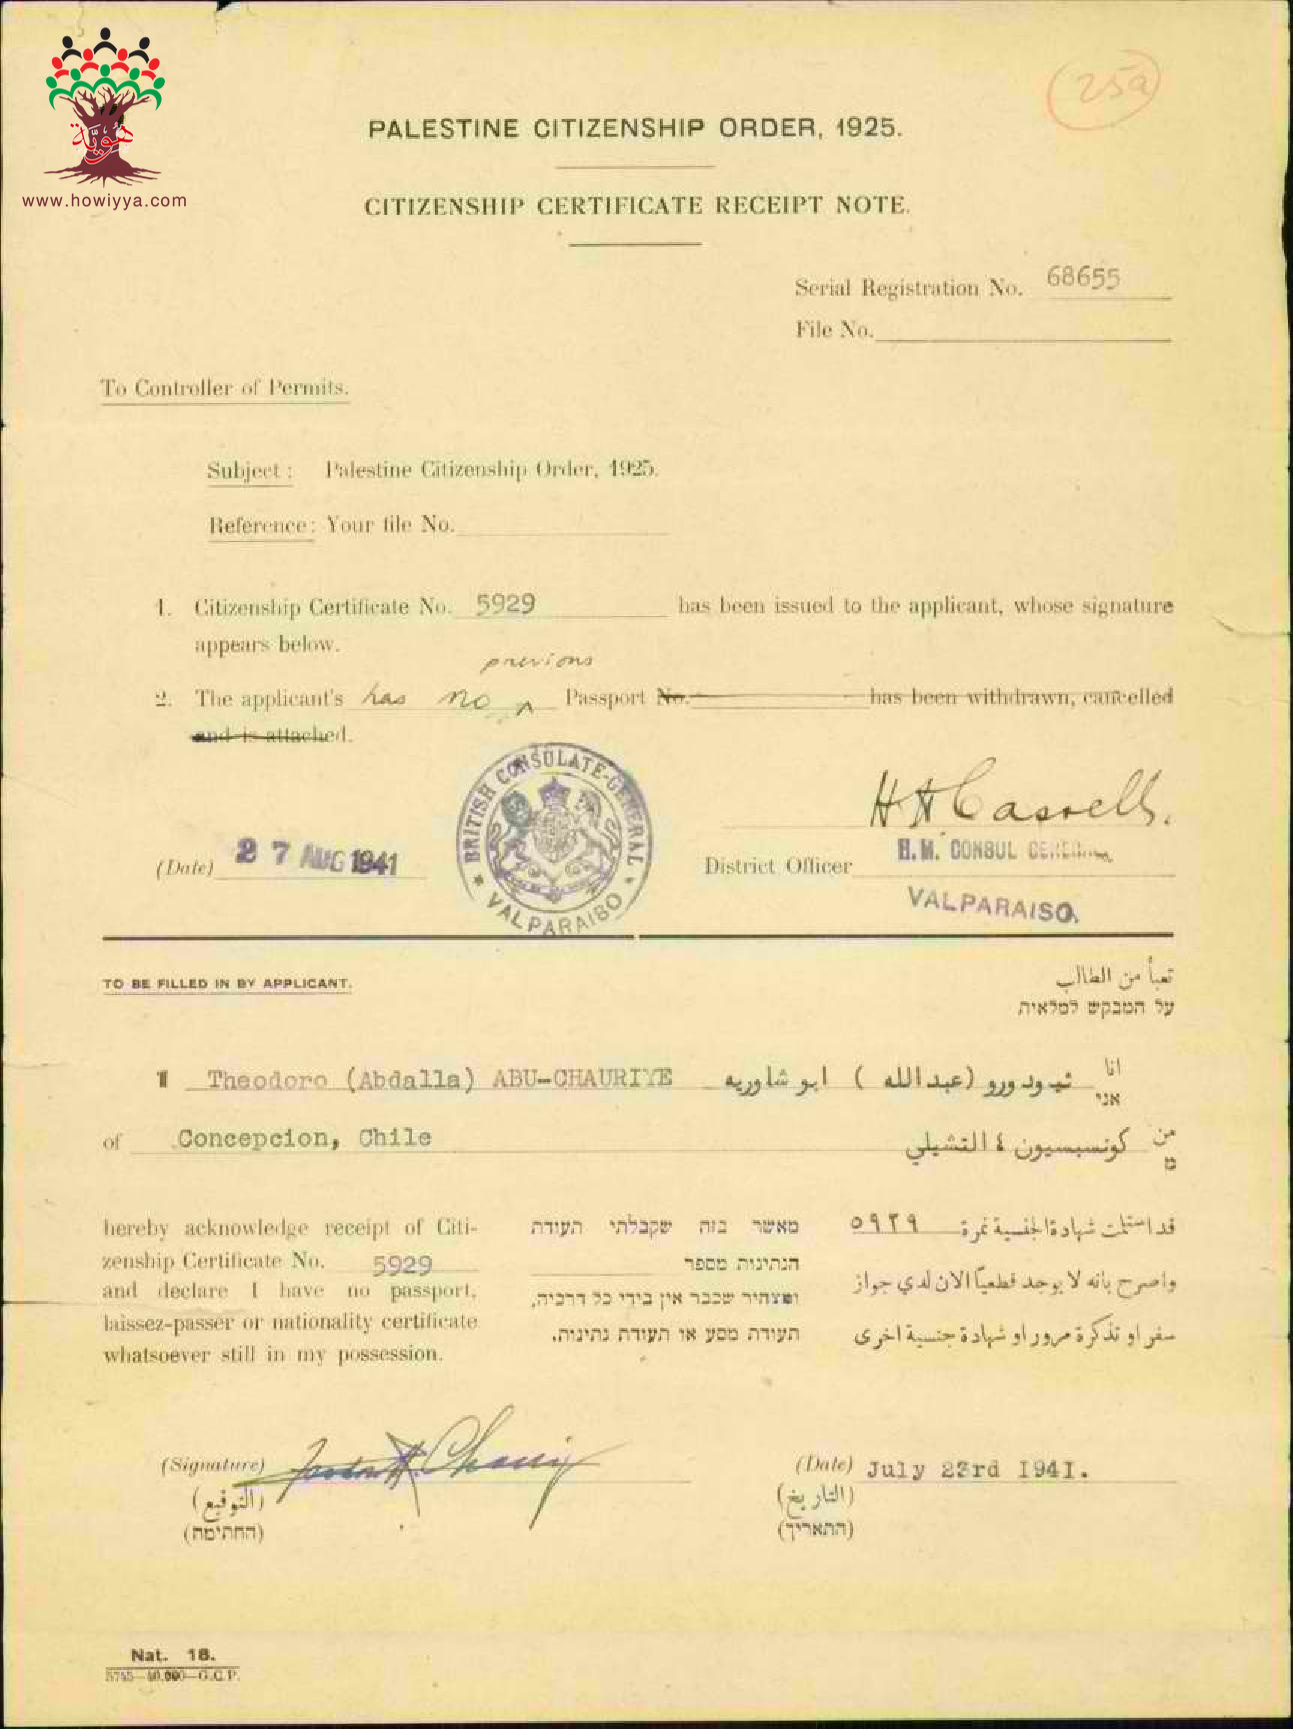 هوية
www.howiyya.com
25a
PALESTINE CITIZENSHIP ORDER, 1925.
CITIZENSHIP CERTIFICATE RECEIPT NOTE.
Serial Registration No. 68655
File No.
To Controller of Permits.
Subject : Palestine Citizenship Order, 1925.
Reference : Your file No.
1. Citizenship Certificate No. 5929 has been issued to the applicant, whose signature
appears below.
previous
2. The applicant's has no ^ Passport No. has been withdrawn, cancelled
and is attached.
BRITISH CONSULATE-GENERAL
* VALPARAISO *
H H Cassells.
(Date) 27 AUG 1941
District Officer H.M. CONSUL GENERAL
VALPARAISO.
TO BE FILLED IN BY APPLICANT.
تعبأ من الطالب
על המבקש למלאית
I Theodoro (Abdalla) ABU-CHAURIYE
ثيودورو (عبدالله ) ابو شاوريه انا
אני
of Concepcion, Chile
كونسبسيون ٤ التشيلي من
מ
hereby acknowledge receipt of Citi-
zenship Certificate No. 5929
and declare I have no passport,
laissez-passer or nationality certificate
whatsoever still in my possession.
מאשר בזה שקבלתי תעודת
הנתינות מספר
ומצהיר שכבר אין בידי כל דרכיה,
תעודת מסע או תעודת נתינות.
قد استلمت شهادة الجنسية نمرة ٥٩٢٩
واصرح بانه لا يوجد قطعياً الان لدي جواز
سفر او تذكرة مرور او شهادة جنسية اخرى
(Signature)
(التوقيع)
(החתימה)
(Date) July 23rd 1941.
(التاريخ)
(התאריך)
Nat. 18.
5745—40.000—G.C.P.